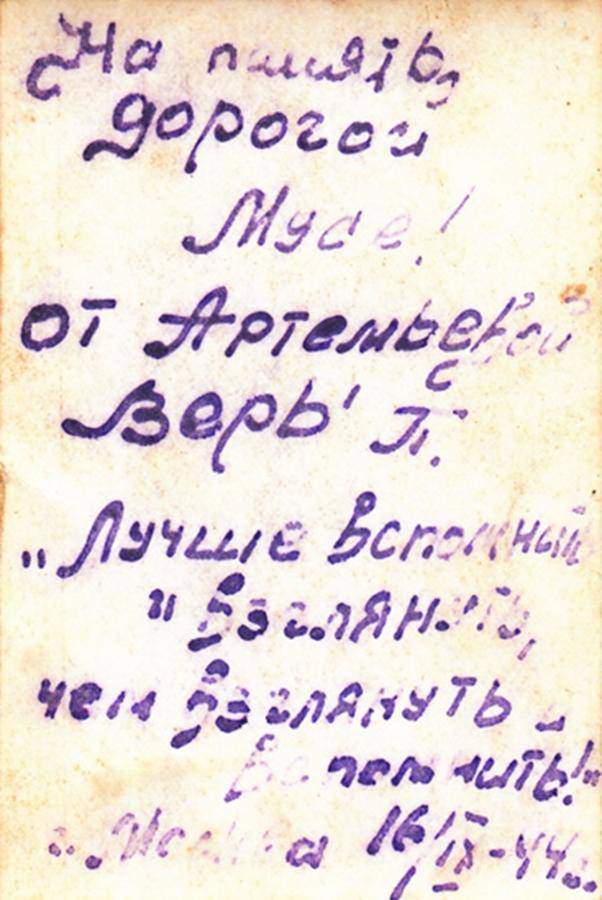 На память
дорогой
Мусе!
от Артемьевой
Веры П.
„Лучше вспомнить
и взглянуть,
чем взглянуть и
вспомнить!"
„Москва 16/IX-44..